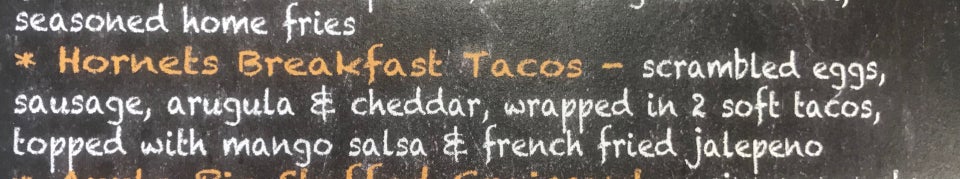 seasoned home fries
* Hornets Breakfast Tacos - scrambled eggs,
sausage, arugula & cheddar, wrapped in 2 soft tacos,
topped with mango salsa & french fried jalepeno